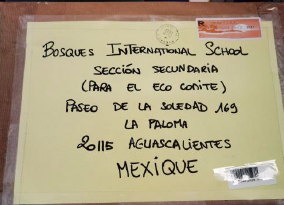 BOSQUES INTERNATIONAL SCHOOL
SECCIÓN SECUNDARIA
(PARA EL ECO COMITE)
PASEO DE LA SOLEDAD 169
LA PALOMA
20115 AGUASCALIENTES
MEXIQUE